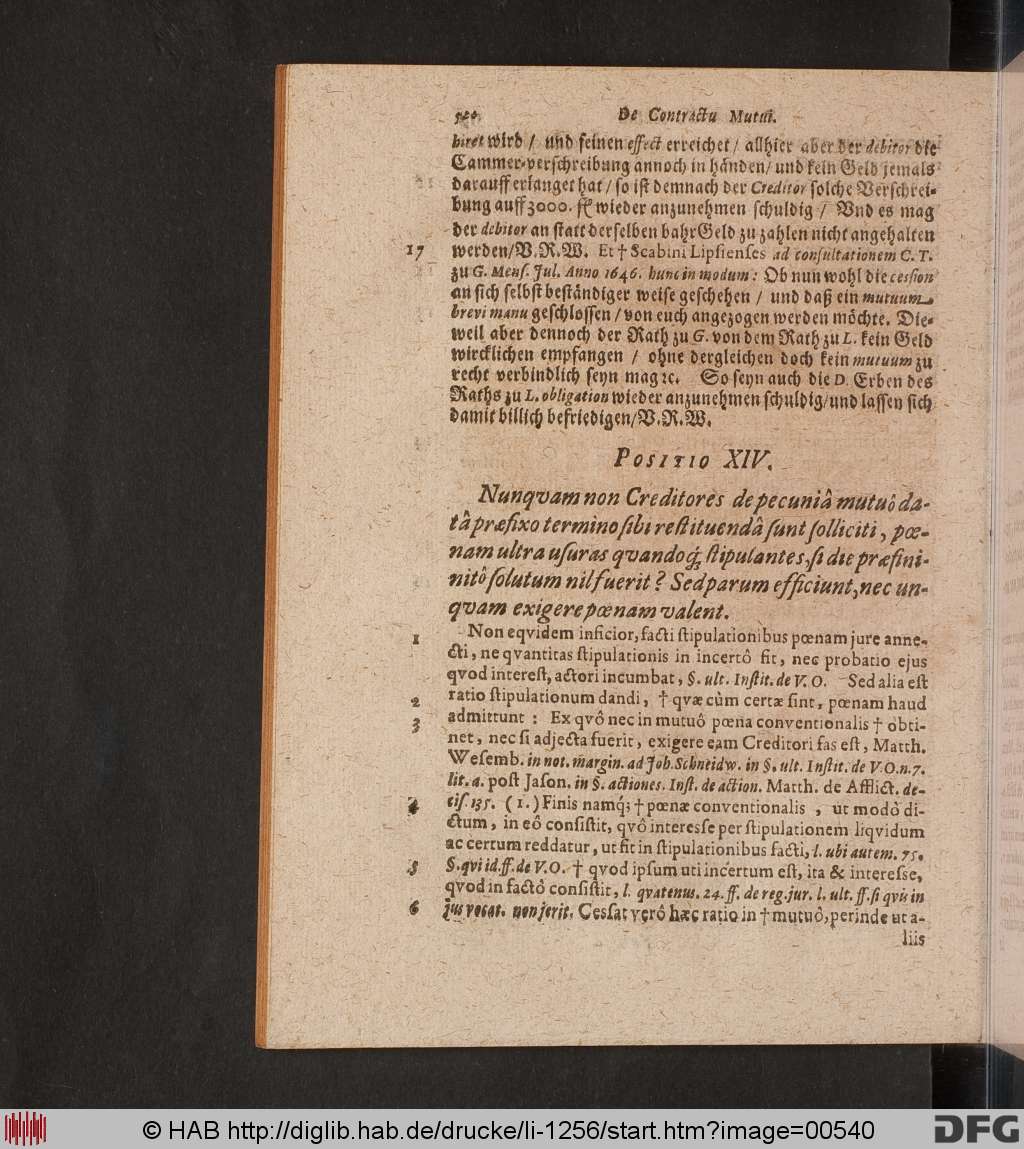 De Contractu Mutui.
biret wird / und seinen effect erreichet / allhier aber der debitor die
Cammer-verschreibung annoch in händen / und kein Geld jemals
darauff erlanget hat / so ist demnach der Creditor solche Verschrei-
bung auff 3000. fl wieder anzunehmen schuldig / Vnd es mag
der debitor an statt derselben bahr Geld zu zahlen nicht angehalten
17 werden / V. R. W. Et † Scabini Lipsienses ad consultationem C. T.
zu G. Mens. Jul. Anno 1646. hunc in modum: Ob nun wohl die cession
an sich selbst beständiger weise geschehen / und daß ein mutuum
brevi manu geschlossen / von euch angezogen werden möchte. Die-
weil aber dennoch der Rath zu G. von dem Rath zu L. kein Geld
wircklichen empfangen / ohne dergleichen doch kein mutuum zu
recht verbindlich seyn mag ꝛc. So seyn auch die D. Erben des
Raths zu L. obligation wieder anzunehmen schuldig / und lassen sich
damit billich befriedigen / V. R. W.
POSITIO XIV.
Nunqvam non Creditores de pecuniâ mutuô da-
tâ præfixo termino sibi restituendâ sunt solliciti, pœ-
nam ultra usuras qvandoq́; stipulantes, si die præfini-
nitô solutum nil fuerit? Sed parum efficiunt, nec un-
qvam exigere pœnam valent.
1 Non eqvidem inficior, facti stipulationibus pœnam jure anne-
cti, ne qvantitas stipulationis in incertô sit, nec probatio ejus
qvod interest, actori incumbat, §. ult. Instit. de V. O. Sed alia est
2 ratio stipulationum dandi, † qvæ cùm certæ sint, pœnam haud
3 admittunt: Ex qvô nec in mutuô pœna conventionalis † obti-
net, nec si adjecta fuerit, exigere eam Creditori fas est, Matth.
Wesemb. in not. margin. ad Joh. Schneidw. in §. ult. Instit. de V. O. n. 7.
lit. a. post Jason. in §. actiones. Inst. de action. Matth. de Afflict. de-
4 cis. 135. (1.) Finis namq́; † pœnæ conventionalis, ut modô di-
ctum, in eô consistit, qvô interesse per stipulationem liqvidum
ac certum reddatur, ut fit in stipulationibus facti, l. ubi autem. 75.
5 §. qvi id. ff. de V. O. † qvod ipsum uti incertum est, ita & interesse,
qvod in factô consistit, l. qvatenus. 24. ff. de reg. jur. l. ult. ff. si qvis in
6 jus vocat. non jerit. Cessat verô hæc ratio in † mutuô, perinde ut a-
liis
© HAB http://diglib.hab.de/drucke/li-1256/start.htm?image=00540
DFG